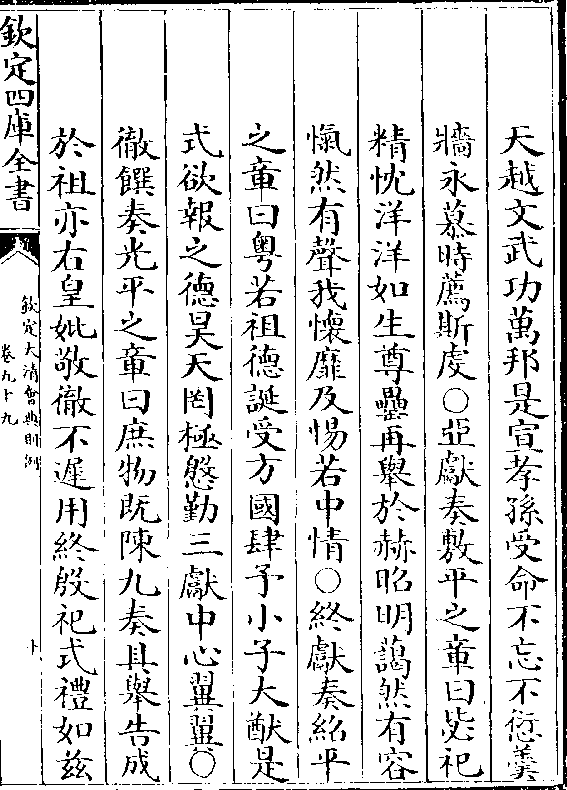 天越文武功萬邦是宣孝孫受命不忘不愆羹
牆永慕時薦斯䖍○亞獻奏敷平之章曰毖祀
精忱洋洋如生尊罍再舉於赫昭明藹然有容
愾然有聲我懷靡及惕若中情○終獻奏紹平
之章曰粵若祖德誕受方國肆予小子大猷是
式欲報之德昊天罔極慇勤三獻中心翼翼○
徹饌奏光平之章曰庶物既陳九奏具舉告成
於祖亦右皇妣敬徹不遲用終殷祀式禮如茲
欽定四庫全書
欽定大清會典則例
卷九十九
十